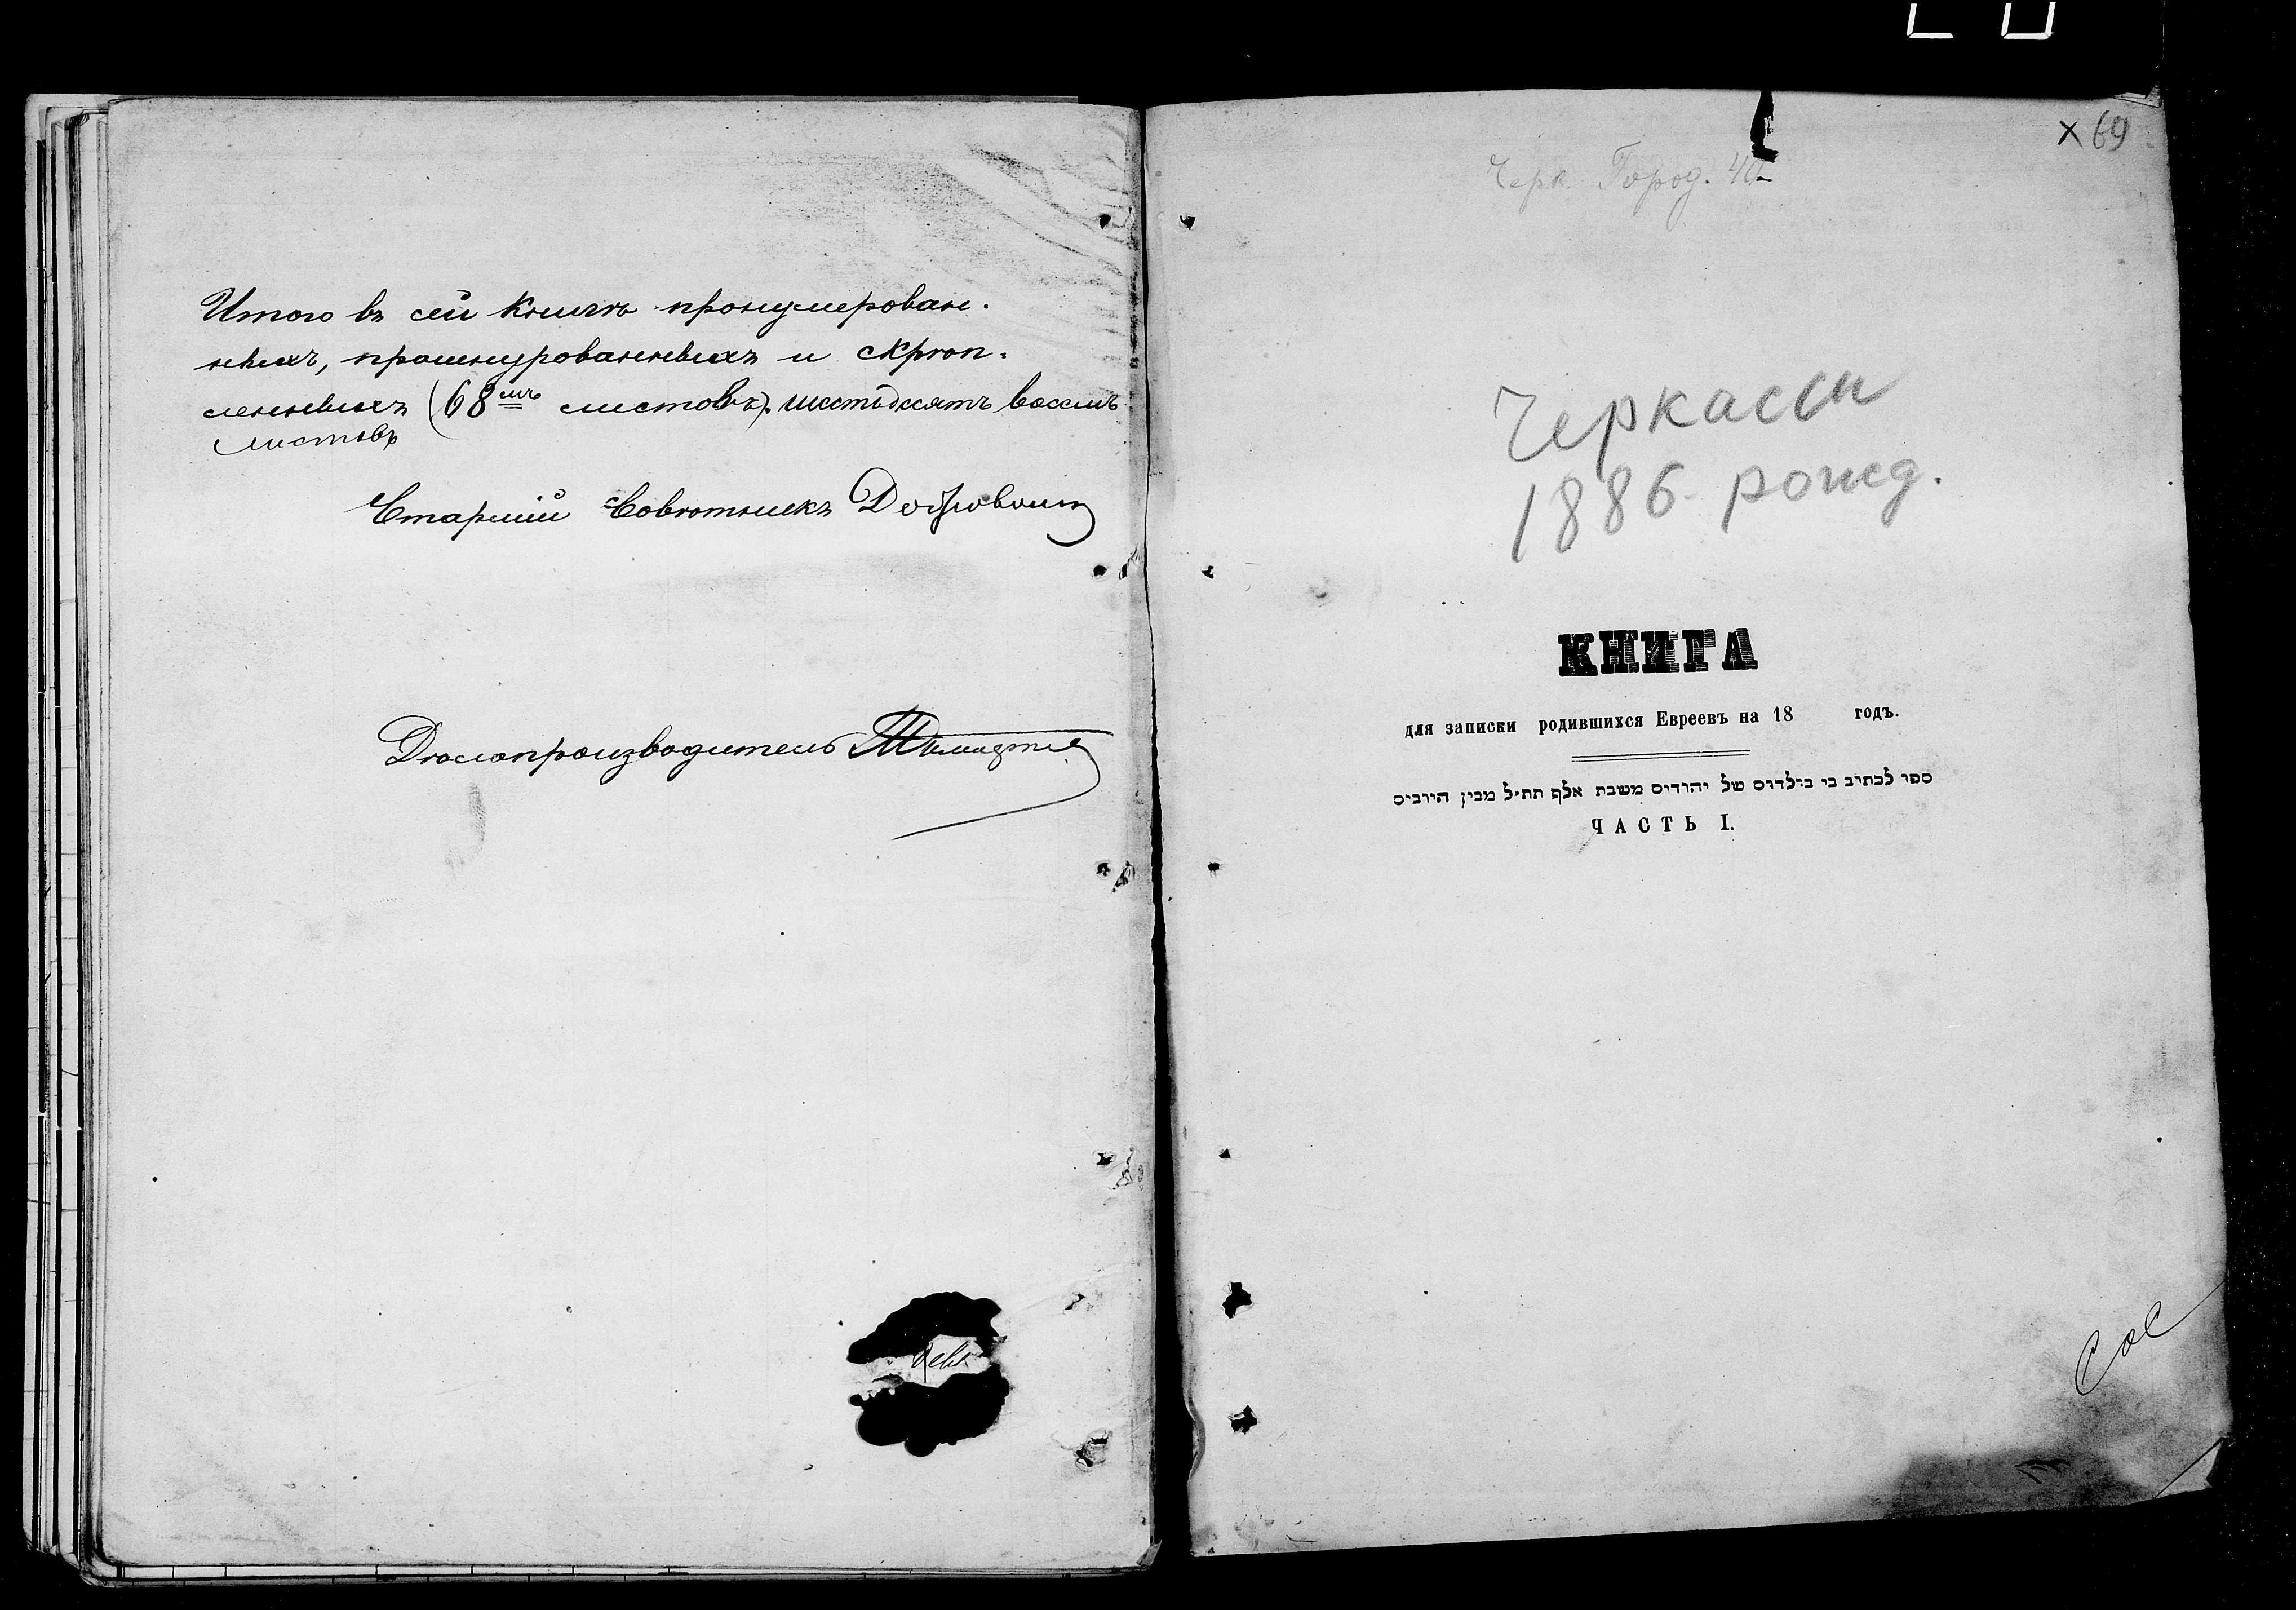 Итого въ сей книгѣ пронумерован-
ныхъ, прошнурованныхъ и скрѣп-
ленныхъ (68мь листовъ). шестьдесятъ восемь
листовъ
Старшій Совѣтникъ
Дѣлопроизводитель
х 69
Черк. Город. 40
Черкассы
1886 рожд.
КНИГА
для записки родившихся Евреевъ на 18 годъ.
ספר לכתוב בו בילדים של יהודים משבת אלף תת״ל מבין היוביס
ЧАСТЬ I.